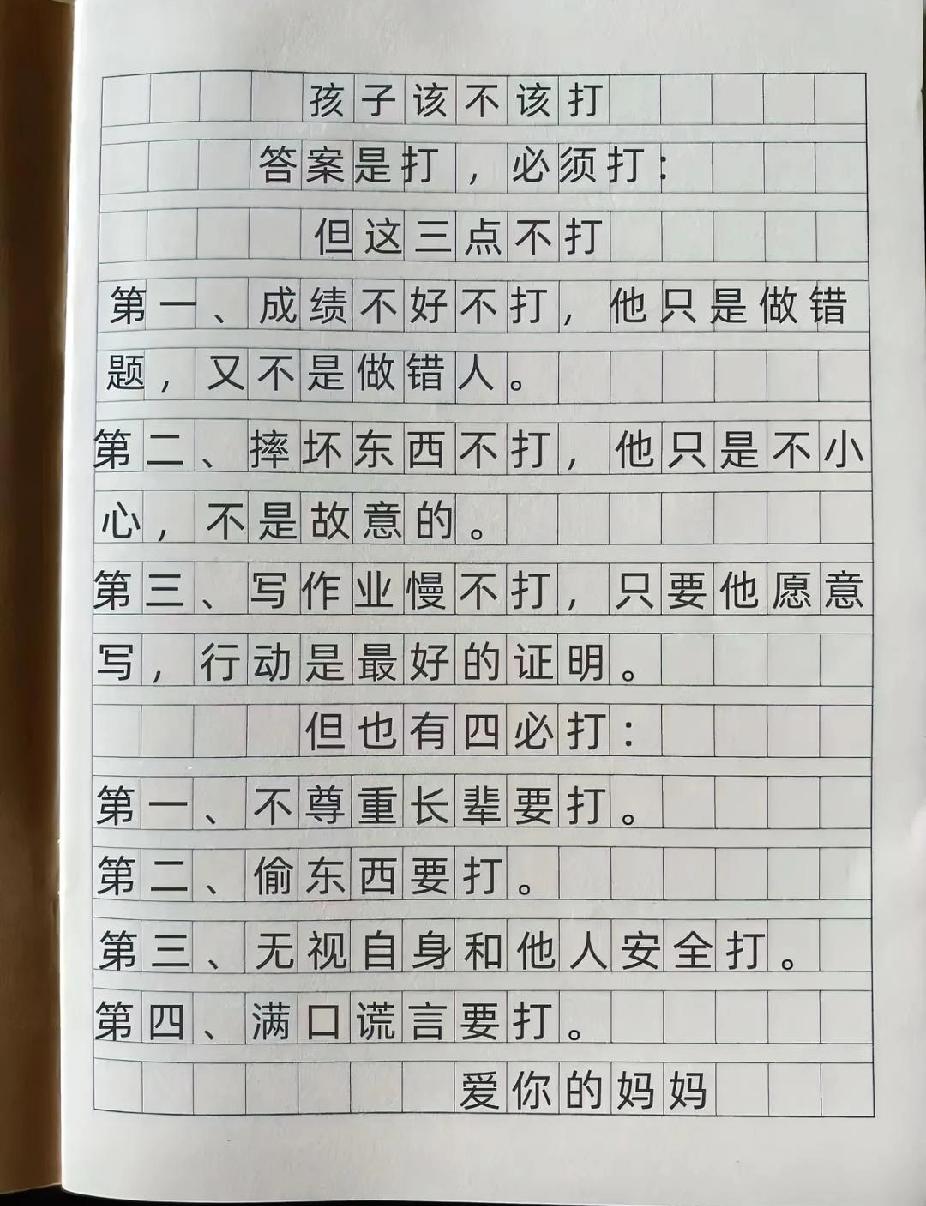 孩子该不该打
答案是打，必须打：
但这三点不打
第一、成绩不好不打，他只是做错
题，又不是做错人。
第二、摔坏东西不打，他只是不小
心，不是故意的。
第三、写作业慢不打，只要他愿意
写，行动是最好的证明。
但也有四必打：
第一、不尊重长辈要打。
第二、偷东西要打。
第三、无视自身和他人安全打。
第四、满口谎言要打。
爱你的妈妈